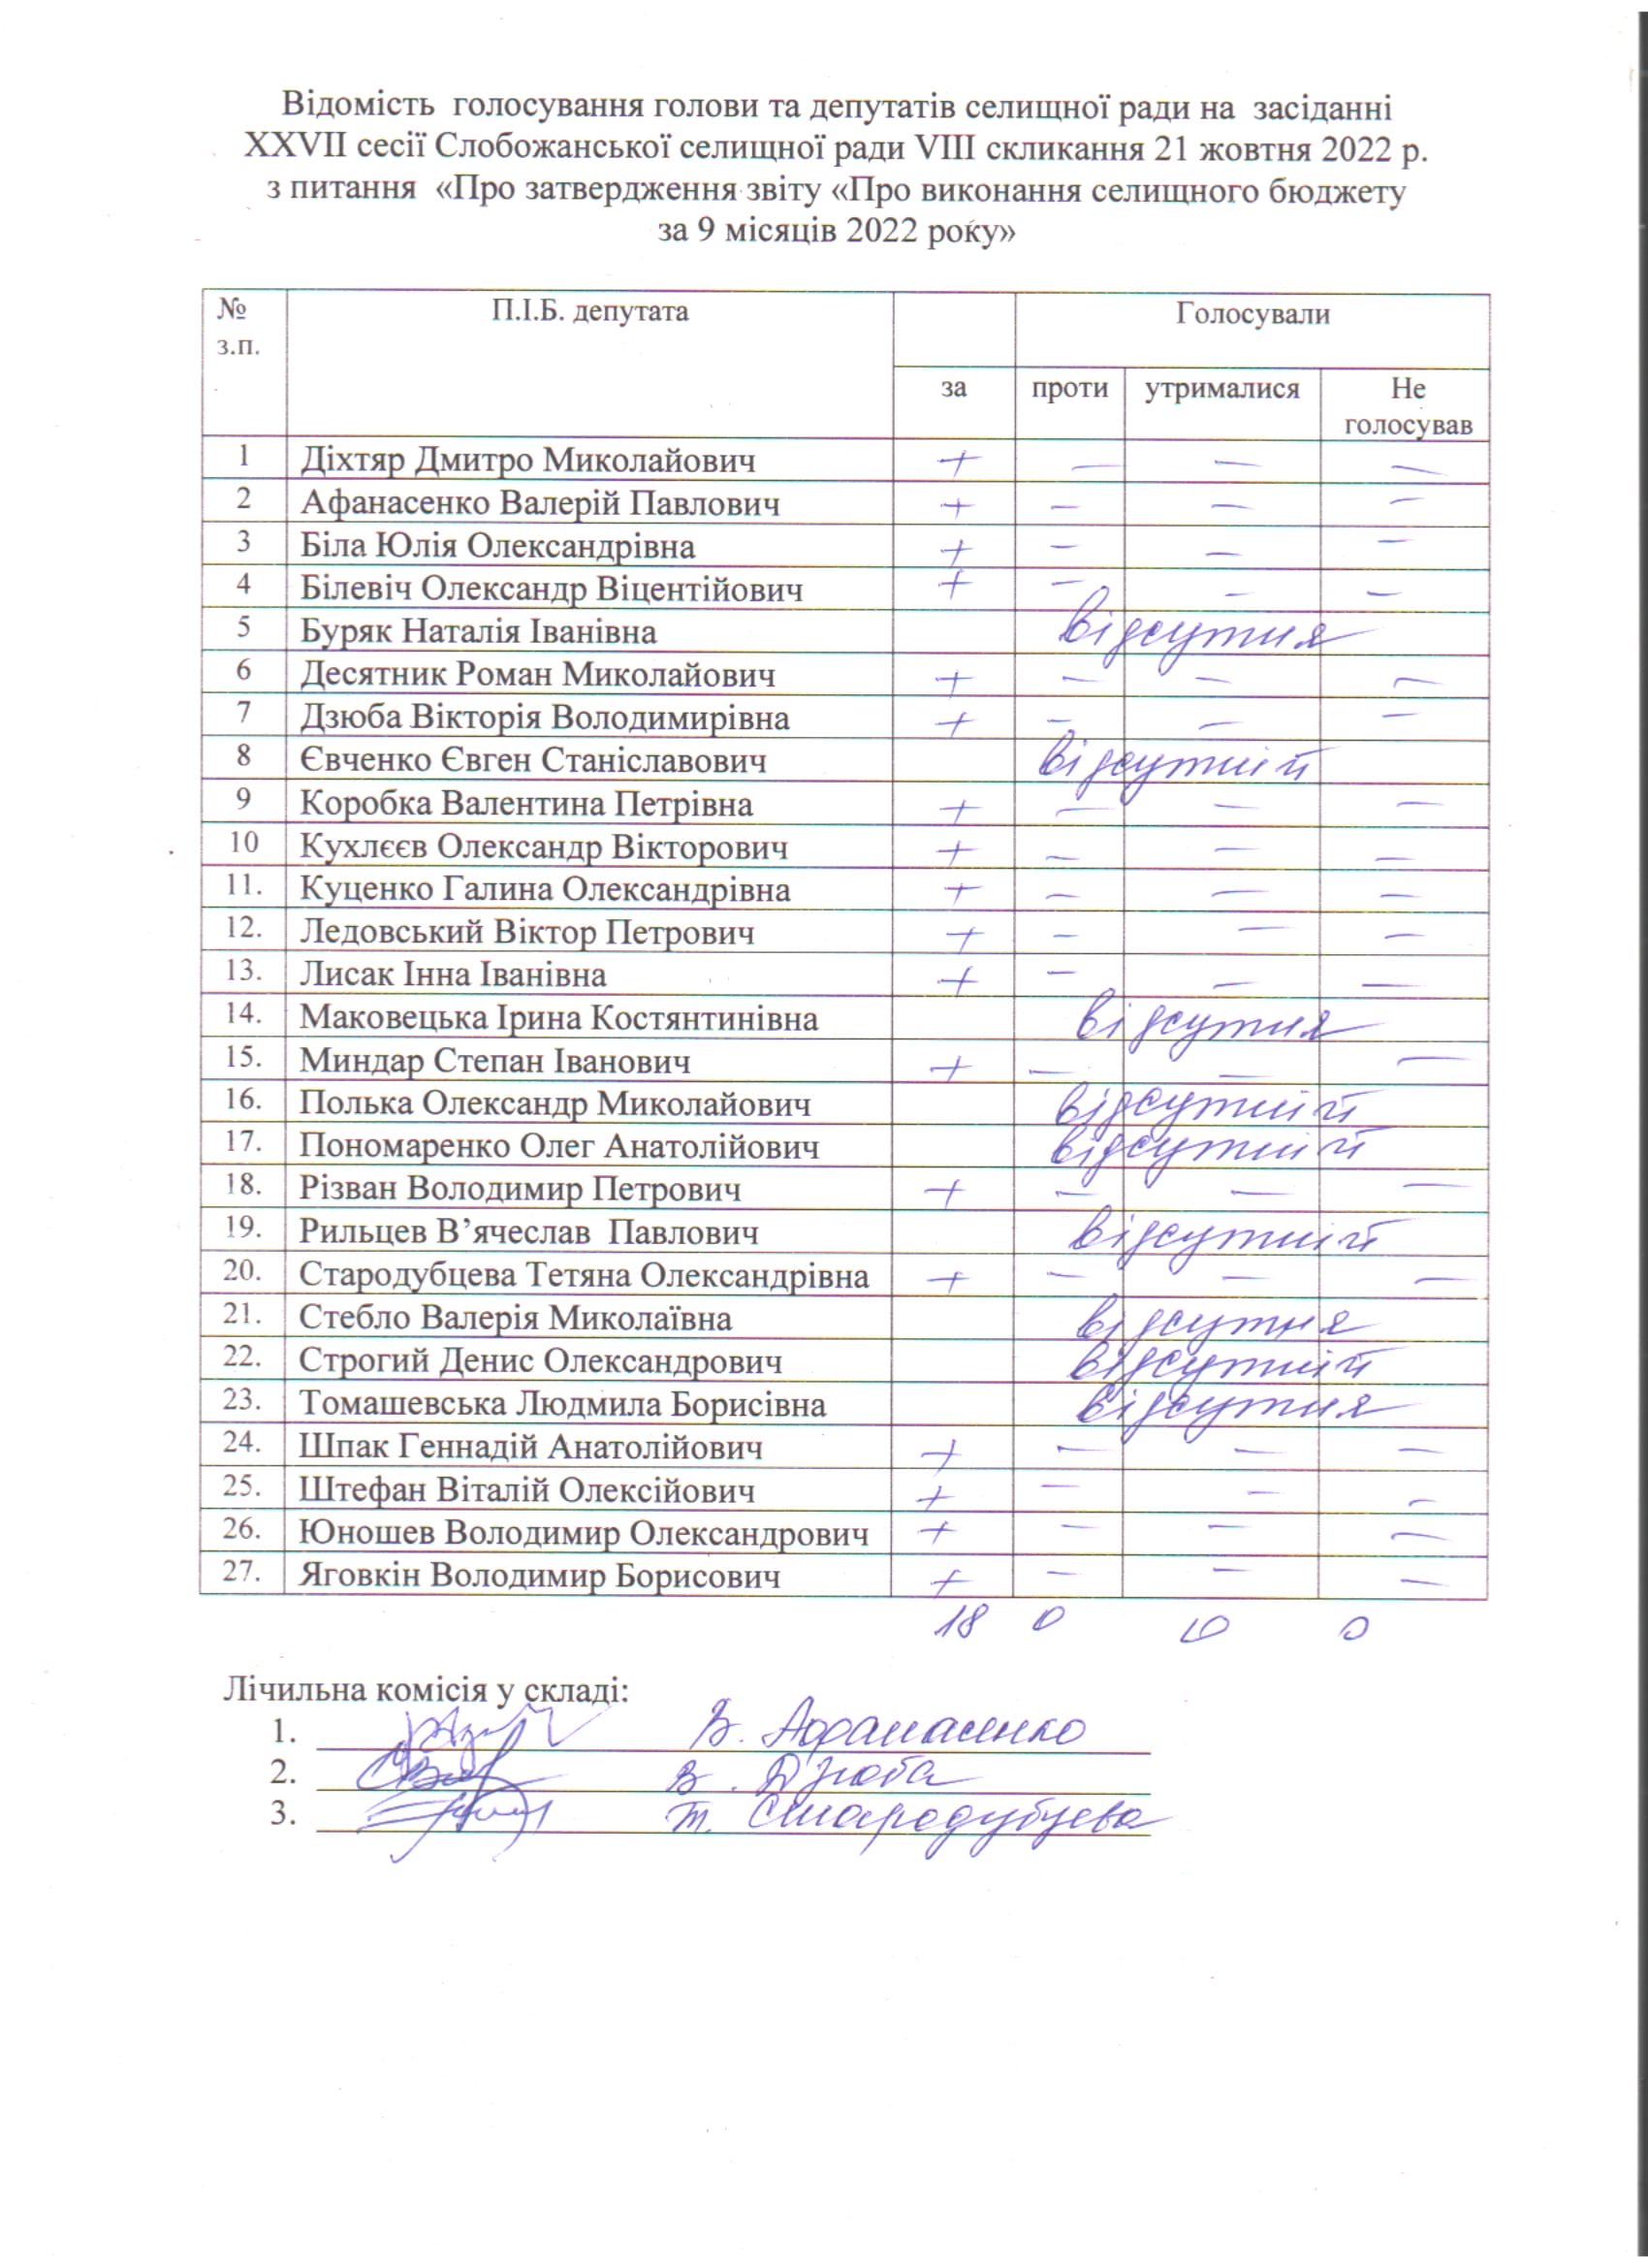 Відомість голосування голови та депутатів селищної ради на засіданні
XXVII сесії Слобожанської селищної ради VIII скликання 21 жовтня 2022 р.
з питання «Про затвердження звіту «Про виконання селищного бюджету
за 9 місяців 2022 року»
№ П.І.Б. депутата Голосували
з.п.
за проти утрималися Не
голосував
1 Діхтяр Дмитро Миколайович + — — —
2 Афанасенко Валерій Павлович + — — —
3 Біла Юлія Олександрівна + — — —
4 Білевіч Олександр Віцентійович + — — —
5 Буряк Наталія Іванівна відсутня
6 Десятник Роман Миколайович + — — —
7 Дзюба Вікторія Володимирівна + — — —
8 Євченко Євген Станіславович відсутній
9 Коробка Валентина Петрівна + — — —
10 Кухлєєв Олександр Вікторович + — — —
11. Куценко Галина Олександрівна + — — —
12. Ледовський Віктор Петрович + — — —
13. Лисак Інна Іванівна + — — —
14. Маковецька Ірина Костянтинівна відсутня
15. Миндар Степан Іванович + — — —
16. Полька Олександр Миколайович відсутній
17. Пономаренко Олег Анатолійович відсутній
18. Різван Володимир Петрович + — — —
19. Рильцев В’ячеслав Павлович відсутній
20. Стародубцева Тетяна Олександрівна + — — —
21. Стебло Валерія Миколаївна відсутня
22. Строгий Денис Олександрович відсутній
23. Томашевська Людмила Борисівна відсутня
24. Шпак Геннадій Анатолійович + — — —
25. Штефан Віталій Олексійович + — — —
26. Юношев Володимир Олександрович + — — —
27. Яговкін Володимир Борисович + — — —
18 0 0 0
Лічильна комісія у складі:
1. В. Афанасенко
2. В. Дзюба
3. Т. Стародубцева